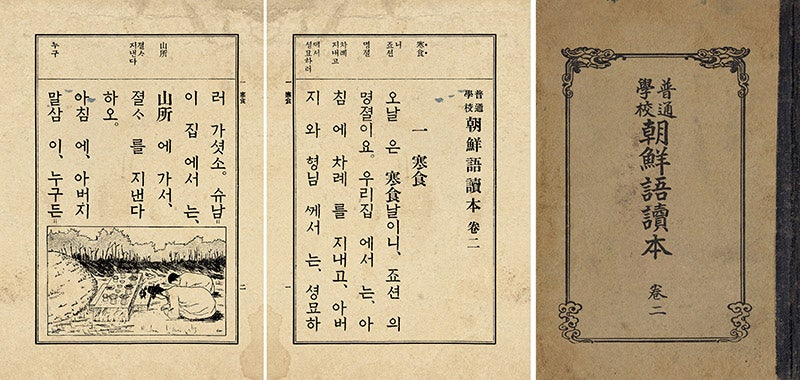 普通
學校
朝鮮語讀本
卷二
寒食
니
죠션
명절
차례
지내고
ᄭᅦ서
셩묘하러
普通
學校
朝鮮語讀本 卷二
一 寒食
오날 은 寒食날이니, 죠션 의
명절이요. 우리집 에서 는, 아
침 에 차례 를 지내고, 아버
지 와 형님 ᄭᅦ서 는, 셩묘하
寒食
一
山所
졀ᄉᆞ
지낸다
누구
寒食
二
러 가셧소. 슈남〓
이 집 에서 는,
山所 에 가서,
졀ᄉᆞ 를 지낸다
하오.
아침 에, 아버지
말삼 이, 누구든〓